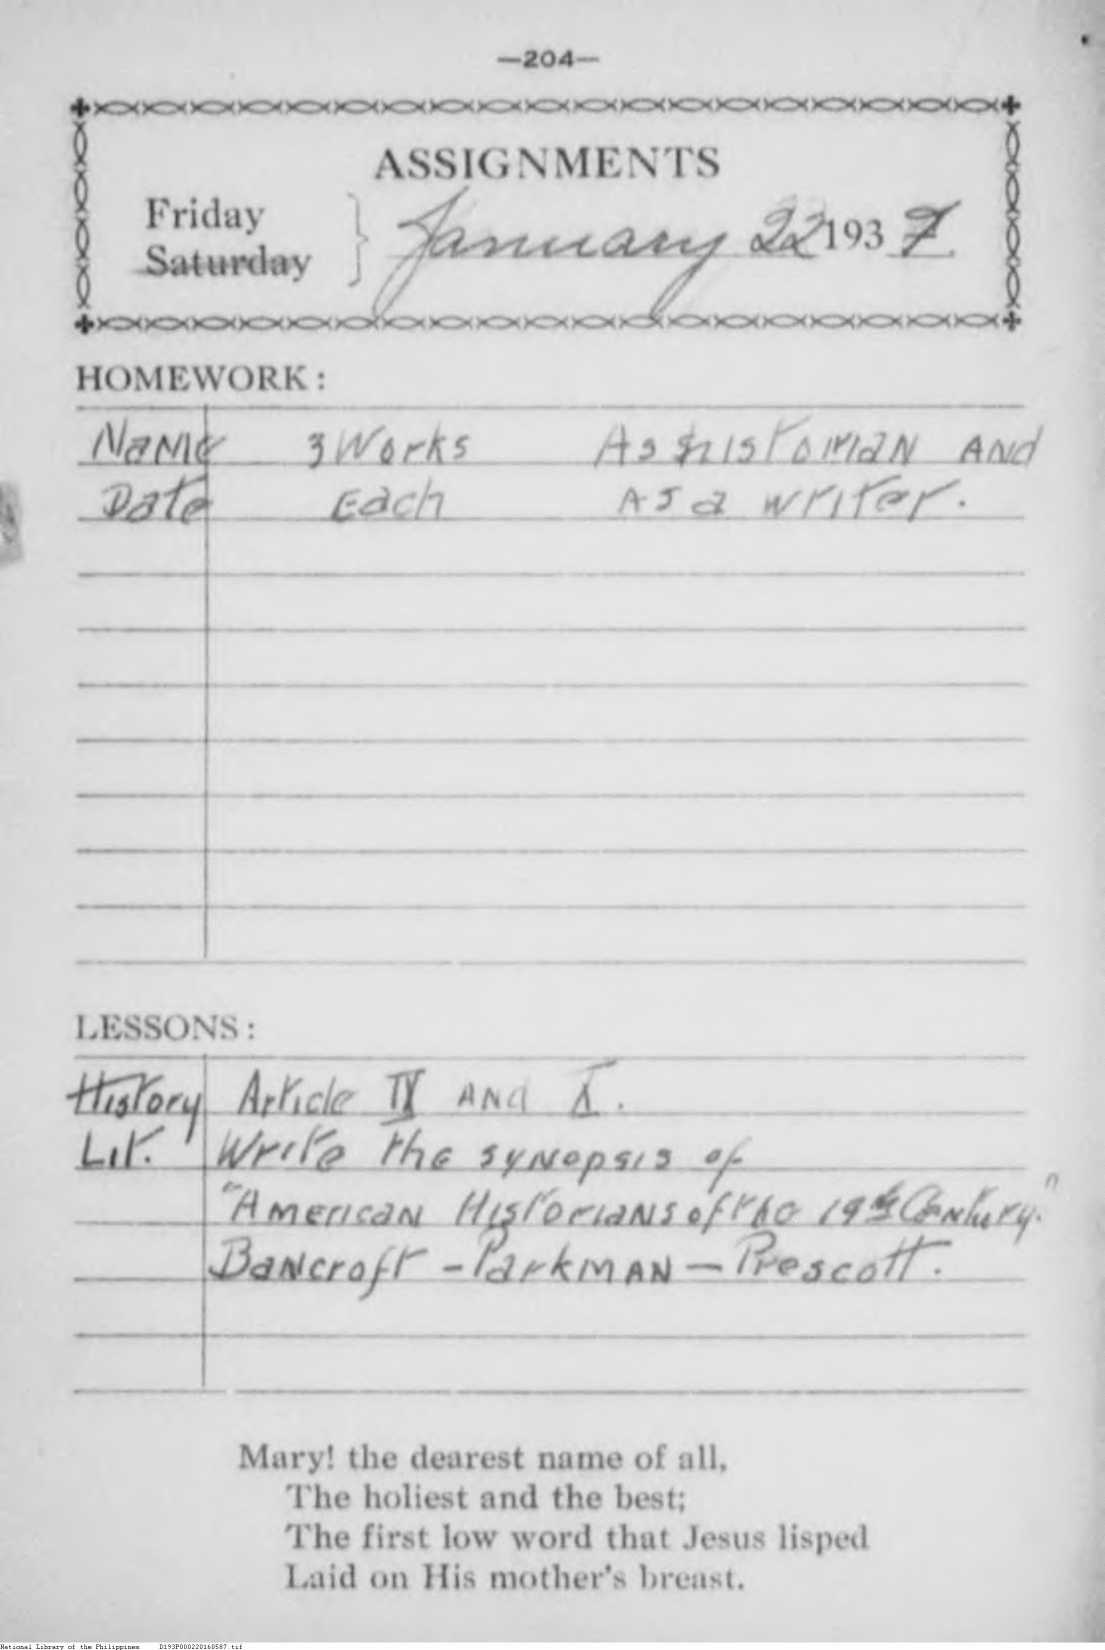 —204—
ASSIGNMENTS
Friday
Saturday
January 22 193 7.
HOMEWORK:
Name 3 Works As Historian and
Date Each As a writer.
LESSONS:
History Article IX and X.
Lit. Write the synopsis of
"American Historians of the 19th Century."
Bancroft - Parkman - Prescott.
Mary! the dearest name of all,
The holiest and the best;
The first low word that Jesus lisped
Laid on His mother's breast.
National Library of the Philippines D193P000220160587.tif